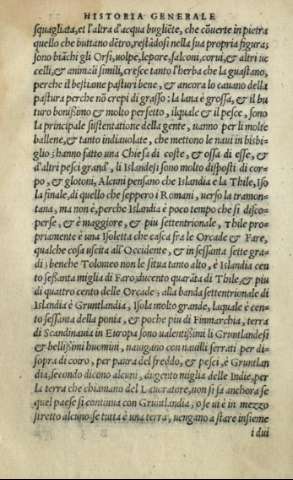 HISTORIA GENERALE
squagliata, et l'altra d'acqua bogliēte, che cōuerte in pietra
quello che buttano dētro, restādosi nella sua propria figura;
sono biāchi gli Orsi, uolpe, lepore, falconi, corui, & altri uc
celli, & animali simili, cresce tanto l'herba che la guastano,
perche il bestiame pasturi bene, & ancora lo cauano della
pastura perche nō crepi di grasso: la lana è grossa, & il bu
turo bonissimo & molto perfetto, ilquale & il pesce, sono
la principale sustentatione della gente, uanno per li molte
ballene, & tanto indiauolate, che mettono le naui in bisbi-
glio: hanno fatto una Chiesa di coste, & ossa di esse, &
d'altri pesci grandi, li Islandesi sono molto disposti di cor-
po, & glotoni, Alcuni pensano che Islandia e la Thile, Iso
la finale, di quello che seppero i Romani, uerso la tramon-
tana, ma non è, perche Islandia è poco tempo che si disco-
perse, & è maggiore, & piu settentrionale, Thile pro-
priamente è una Isoletta che casca fra le Orcade & Fare,
qualche cosa uscita all'Occidente, & in sessanta sette gra-
di; benche Tolomeo non le situa tanto alto, è Islandia cen
to seßanta miglia di Faro; ducento quarāta di Thile, & piu
di quattro cento delle Orcade; alla banda settentrionale di
Islandia è Gruntlandia, Isola molto grande, laquale è cen-
to seßanta della ponia, & poche piu di Finmarchia, terra
di Scandinauia in Europa sono ualentißimi li Gruntlandesi
& bellißimi huomini, nauigano con nauilli serrati per di-
sopra di coiro, per paura del freddo, & pesci; è Gruntlan
dia, secondo dicono alcuni, dugento miglia delle Indie, per
la terra che chiamano del Lauoratore, non si sa anchora se
quel paese si continua con Gruntlandia; o se ui è in mezzo
stretto alcuno: se tutta è una terra, uengano a stare insieme
i dui